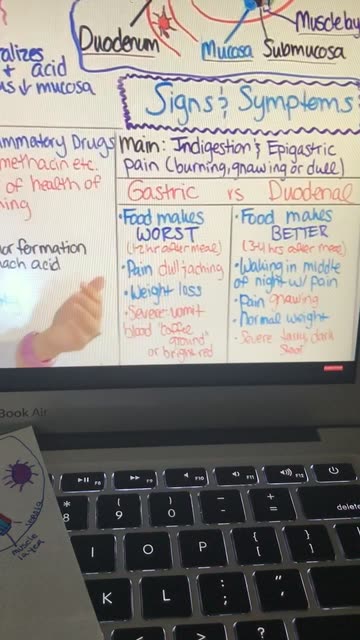 Duodenum
Muscle by
Mucosa Submucosa
alizes
+ acid
us ↓ mucosa
Signs & Symptoms
mmatory Drugs
methacin etc.
of health of
ning
or formation
ach acid
main: Indigestion & Epigastric
pain (burning, gnawing or dull)
Gastric vs Duodenal
• Food makes
WORST
(1-2 hr after meal)
• Pain dull/aching
• Weight loss
• Severe: vomit
blood "coffee
ground"
or bright red
• Food makes
BETTER
(3-4 hrs after meal)
• Waking in middle
of night w/ pain
• Pain gnawing
• Normal weight
• Severe tarry, dark
stool
Book Air
F8
F9
F10
F11
F12
* 8
( 9
) 0
_ -
+ =
delete
I O P { [ } ]
K L : ; " '
> ?
muscle